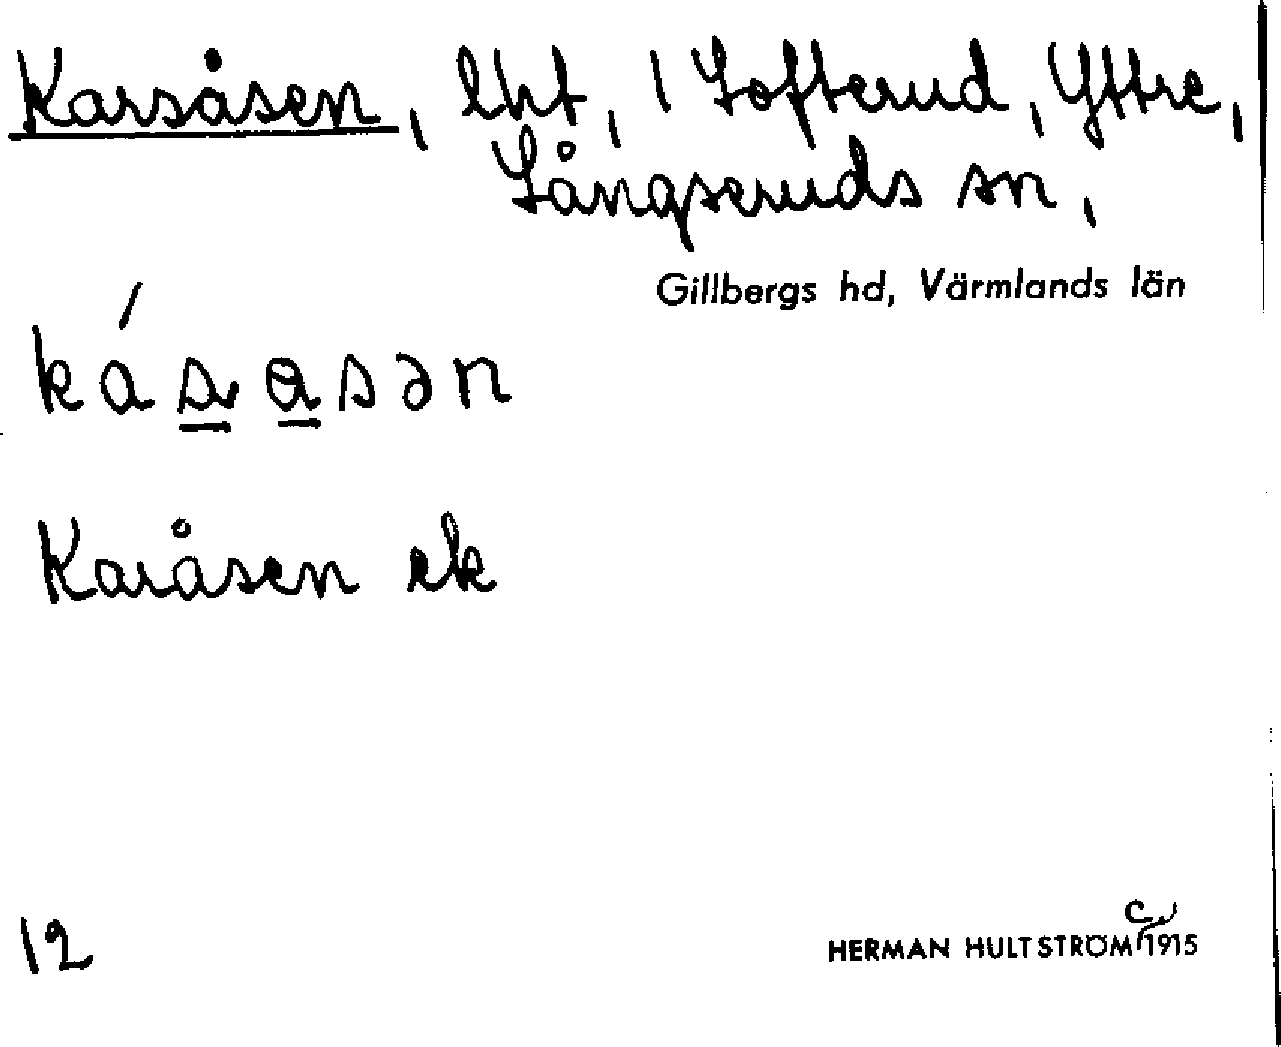 Karsåsen, lht, 1 Lofterud, Yttre,
Långseruds sn,
Gillbergs hd, Värmlands län
Karåsen ek
12
HERMAN HULTSTRÖM 1915